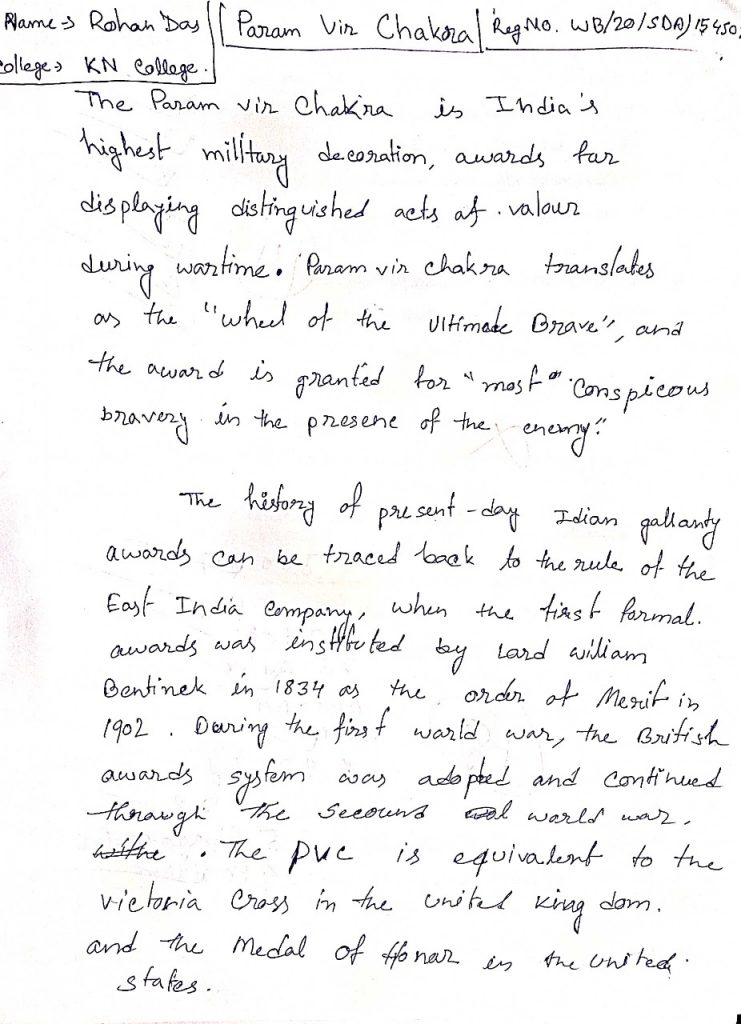 Name → Rohan Das
Param Vir Chakra
Reg No. WB/20/SDA/15450
College → KN College.
The Param vir Chakra is India's
highest military decoration, awards for
displaying distinguished acts of valour
during wartime. Param vir chakra translates
as the "wheel of the Ultimate Brave", and
the award is granted for "most conspicous
bravery in the presene of the enemy."
The history of present-day Idian gallanty
awards can be traced back to the rule of the
East India Company, when the first formal.
awards was instituted by Lord william
Bentinck in 1834 as the order of Merit in
1902. During the first world war, the British
awards system was adopted and continued
through the Secound world war.
. The PVC is equivalent to the
victoria Cross in the united king dom.
and the Medal of Honar in the united.
states.